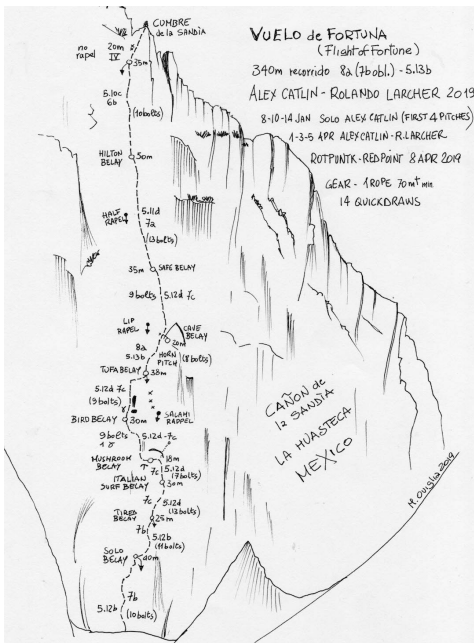 CUMBRE
de la SANDÌA
VUELO de FORTUNA
(Flight of Fortune)
340m recorrido 8a (7b obl.) - 5.13b
ALEX CATLIN - ROLANDO LARCHER 2019
8-10-14 JAN SOLO ALEX CATLIN (FIRST 4 PITCHES)
1-3-5 APR ALEX CATLIN - R. LARCHER
ROTPUNTK - REDPOINT 8 APR 2019
GEAR - 1 ROPE 70 mt min
14 QUICKDRAWS
no
rapel
20m
IV
35m
5.10c
6b
(10bolts)
HILTON
BELAY
50m
HALF
RAPEL
5.11d
7a
(13bolts)
35m
SAFE BELAY
9bolts
5.12d 7c
LIP
RAPEL
CAVE
BELAY
20m
8a
5.13b
HORN
PITCH
(8bolts)
TUFA BELAY
38m
5.12d 7c
(9bolts)
SALAMI
RAPPEL
BIRD BELAY
30m
9bolts
5.12d - 7c
MUSHROOM
BELAY
18m
7c
5.12d
(17bolts)
ITALIAN
SURF BELAY
30m
7c
5.12d
(13bolts)
TIRED
BELAY
25m
7b
5.12b
(11bolts)
SOLO
BELAY
40m
7b
5.12b
(10bolts)
CAÑON de
la SANDÌA
LA HUASTECA
MEXICO
M. Oviglia 2019